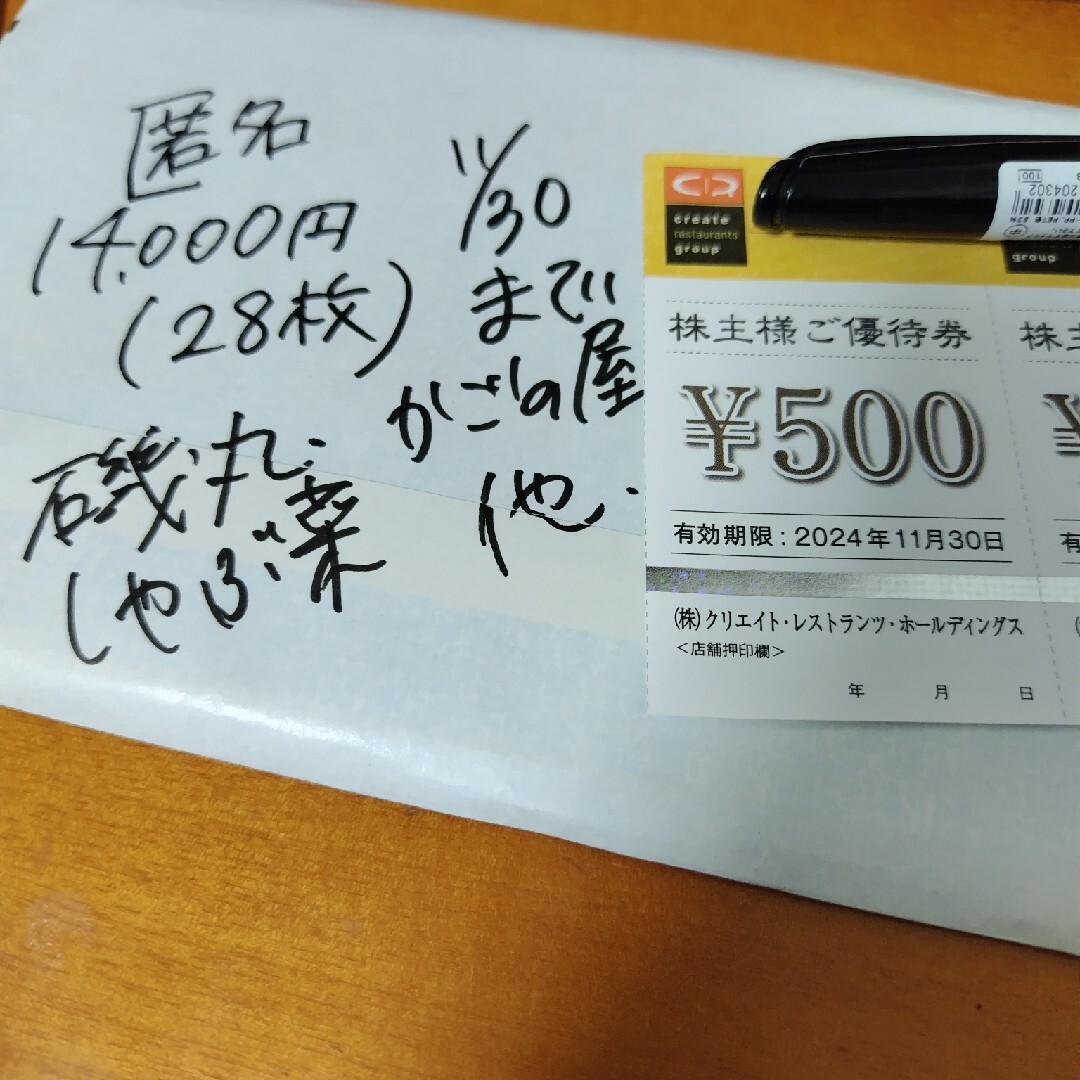 匿名
14,000円
(28枚)
磯丸・
しゃぶ菜
11/30
まで
かごの屋
他.
create
restaurants
group
株主様ご優待券
¥500
有効期限:2024年11月30日
(株)クリエイト・レストランツ・ホールディングス
<店舗押印欄>
年 月 日
group
株主
¥
有
204302
100